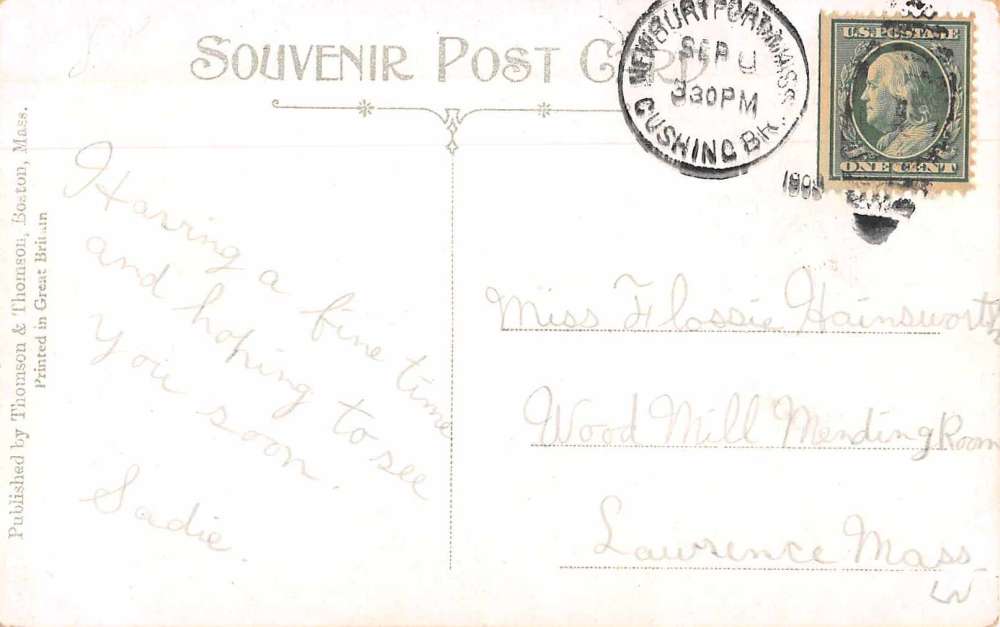 SOUVENIR POST CARD
NEWBURYPORT, MASS.
SEP
330PM
CUSHING BR.
U.S. POSTAGE
ONE CENT
Published by Thomson & Thomson, Boston, Mass.
Printed in Great Britain
Having a fine time
and hoping to see
you soon.
Sadie.
Miss Flossie Hainsworth
Wood Mill Mending Room
Lawrence Mass